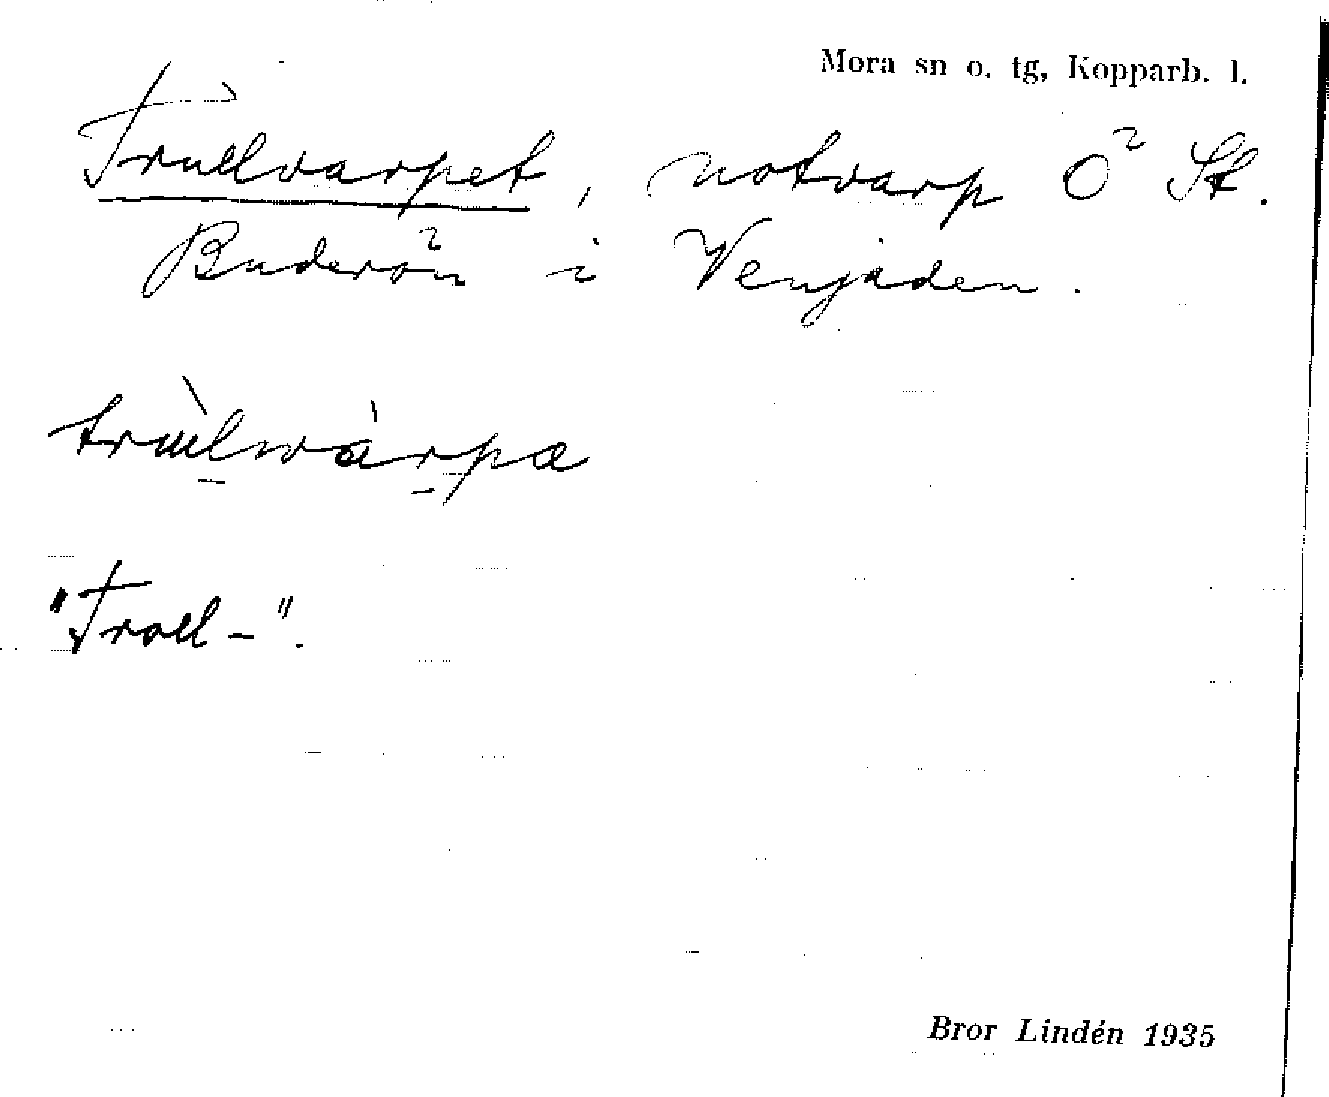 Mora sn o. tg, Kopparb. l.
Trullvarpet, notvarp Ö St.
Buderön i Venjaden.
trùlwàrpa
"Troll-".
Bror Lindén 1935